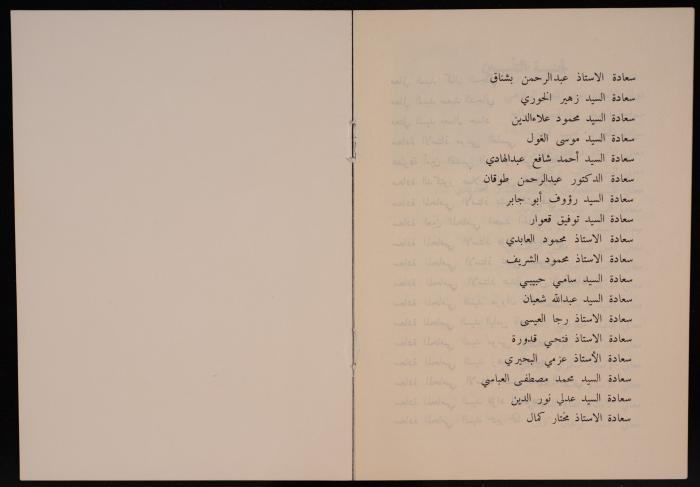 سعادة الاستاذ عبدالرحمن بشناق
سعادة السيد زهير الخوري
سعادة السيد محمود علاءالدين
سعادة السيد موسى الغول
سعادة السيد أحمد شافع عبدالهادي
سعادة الدكتور عبدالرحمن طوقان
سعادة السيد رؤوف أبو جابر
سعادة السيد توفيق قعوار
سعادة الاستاذ محمود العابدي
سعادة الاستاذ محمود الشريف
سعادة السيد سامي حبيبي
سعادة السيد عبدالله شعبان
سعادة الاستاذ رجا العيسى
سعادة الاستاذ فتحي قدورة
سعادة الأستاذ عزمي البحيري
سعادة السيد محمد مصطفى العباسي
سعادة السيد عدلي نور الدين
سعادة الاستاذ مختار كمال